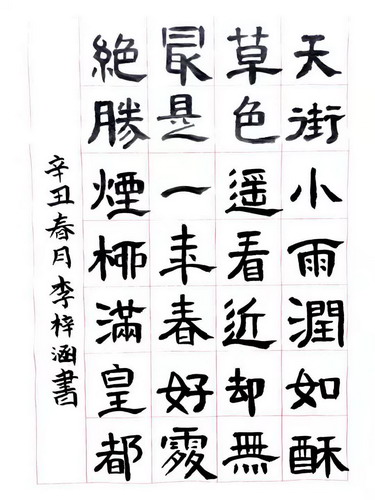 天街小雨潤如酥
草色遥看近却無
最是一年春好處
絶勝煙柳滿皇都
辛丑春月李梓涵書